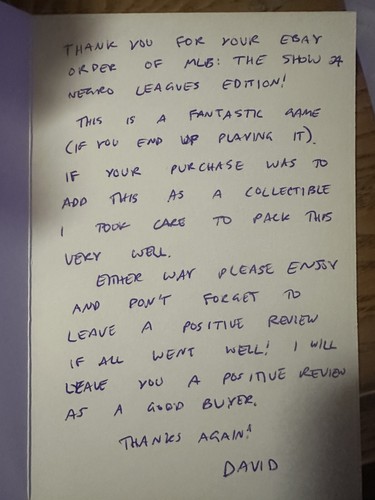 THANK YOU FOR YOUR EBAY
ORDER OF MLB: THE SHOW 24
NEGRO LEAGUES EDITION!
THIS IS A FANTASTIC GAME
(IF YOU END UP PLAYING IT).
IF YOUR PURCHASE WAS TO
ADD THIS AS A COLLECTIBLE
I TOOK CARE TO PACK THIS
VERY WELL.
EITHER WAY PLEASE ENJOY
AND DON'T FORGET TO
LEAVE A POSITIVE REVIEW
IF ALL WENT WELL! I WILL
LEAVE YOU A POSITIVE REVIEW
AS A GOOD BUYER.
THANKS AGAIN!
DAVID